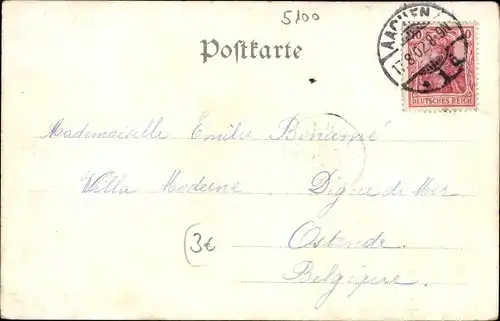 5100
AACHEN
17.8.02.8-9N.
* 1 c
10
DEUTSCHES REICH
Postkarte
Mademoiselle Emilie Binamé
Villa Moderne Digue de Mer
3€
Ostende.
Belgique.